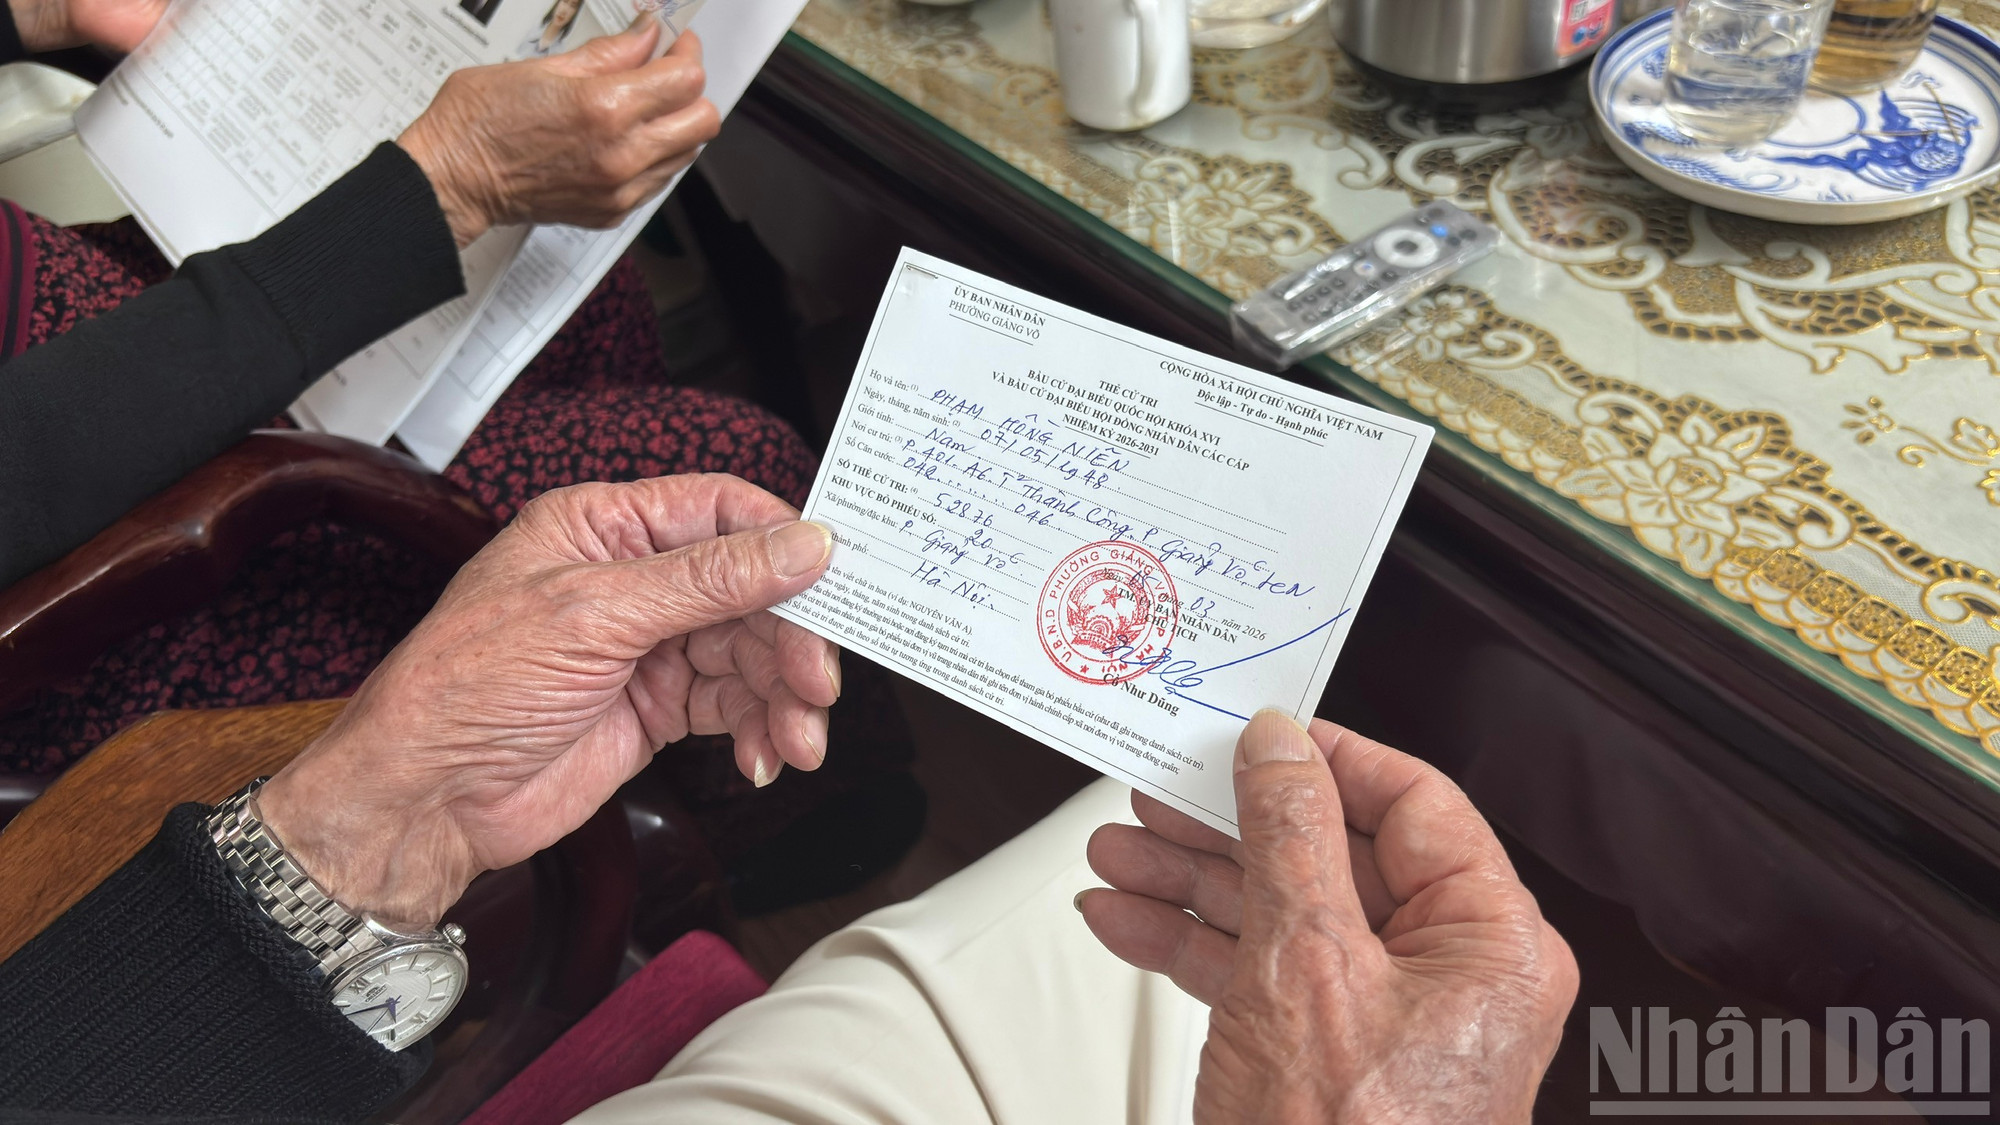 ỦY BAN NHÂN DÂN
PHƯỜNG GIẢNG VÕ
CỘNG HÒA XÃ HỘI CHỦ NGHĨA VIỆT NAM
Độc lập - Tự do - Hạnh phúc
THẺ CỬ TRI
BẦU CỬ ĐẠI BIỂU QUỐC HỘI KHÓA XVI
VÀ BẦU CỬ ĐẠI BIỂU HỘI ĐỒNG NHÂN DÂN CÁC CẤP
NHIỆM KỲ 2026-2031
Họ và tên: (1) PHẠM HỒNG NIÊN
Ngày, tháng, năm sinh: (2) 07/05/1948
Giới tính: Nam
Nơi cư trú: (3) P 401. A6. Thành Công. P Giảng Võ,
Số Căn cước: 042......... 046
SỐ THẺ CỬ TRI: (4) 52876
KHU VỰC BỎ PHIẾU SỐ: 20
Xã/phường/đặc khu: P. Giảng Võ
thành phố: Hà Nội.
05 tháng 03 năm 2026
TM. ỦY BAN NHÂN DÂN
CHỦ TỊCH
U.B.N.D PHƯỜNG GIẢNG VÕ T.P HÀ NỘI
Cồ Như Dũng
tên viết chữ in hoa (ví dụ: NGUYỄN VĂN A).
theo ngày, tháng, năm sinh trong danh sách cử tri.
địa chỉ nơi đăng ký thường trú hoặc nơi đăng ký tạm trú mà cử tri lựa chọn để tham gia bỏ phiếu bầu cử (như đã ghi trong danh sách cử tri).
với cử tri là quân nhân tham gia bỏ phiếu tại đơn vị vũ trang nhân dân thì ghi tên đơn vị hành chính cấp xã nơi đơn vị vũ trang đóng quân;
(4) Số thẻ cử tri được ghi theo số thứ tự tương ứng trong danh sách cử tri.
Nhân Dân